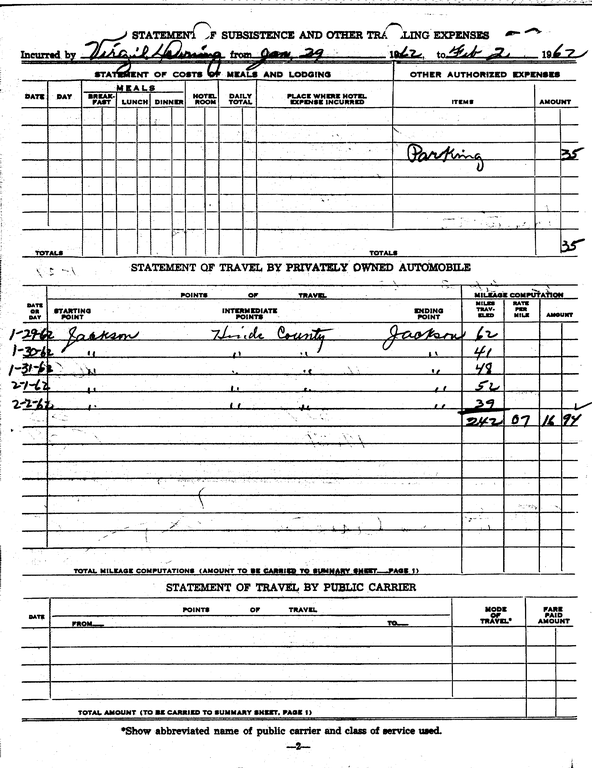 STATEMENT OF SUBSISTENCE AND OTHER TRA LING EXPENSES
Incurred by Virgil from Jan. 29 1962, to Feb 2, 1962
STATEMENT OF COSTS OF MEALS AND LODGING OTHER AUTHORIZED EXPENSES
DATE DAY MEALS BREAK-FAST LUNCH DINNER HOTEL ROOM DAILY TOTAL PLACE WHERE HOTEL EXPENSE INCURRED ITEMS AMOUNT
Parking 35
TOTALS TOTALS 35
STATEMENT OF TRAVEL BY PRIVATELY OWNED AUTOMOBILE
POINTS OF TRAVEL MILEAGE COMPUTATION
DATE OR DAY STARTING POINT INTERMEDIATE POINTS ENDING POINT MILES TRAV-ELED RATE PER MILE AMOUNT
1-29-62 Jackson Hinds County Jackson 62
1-30-62 " " " " 41
1-31-62 " " " " 48
2-1-62 " " " " 52
2-2-62 " " " " 39
242 07 16 94
TOTAL MILEAGE COMPUTATIONS (AMOUNT TO BE CARRIED TO SUMMARY SHEET, PAGE 1)
STATEMENT OF TRAVEL BY PUBLIC CARRIER
DATE POINTS OF TRAVEL MODE OF TRAVEL* FARE PAID AMOUNT
FROM TO
TOTAL AMOUNT (TO BE CARRIED TO SUMMARY SHEET, PAGE 1)
*Show abbreviated name of public carrier and class of service used.
—2—